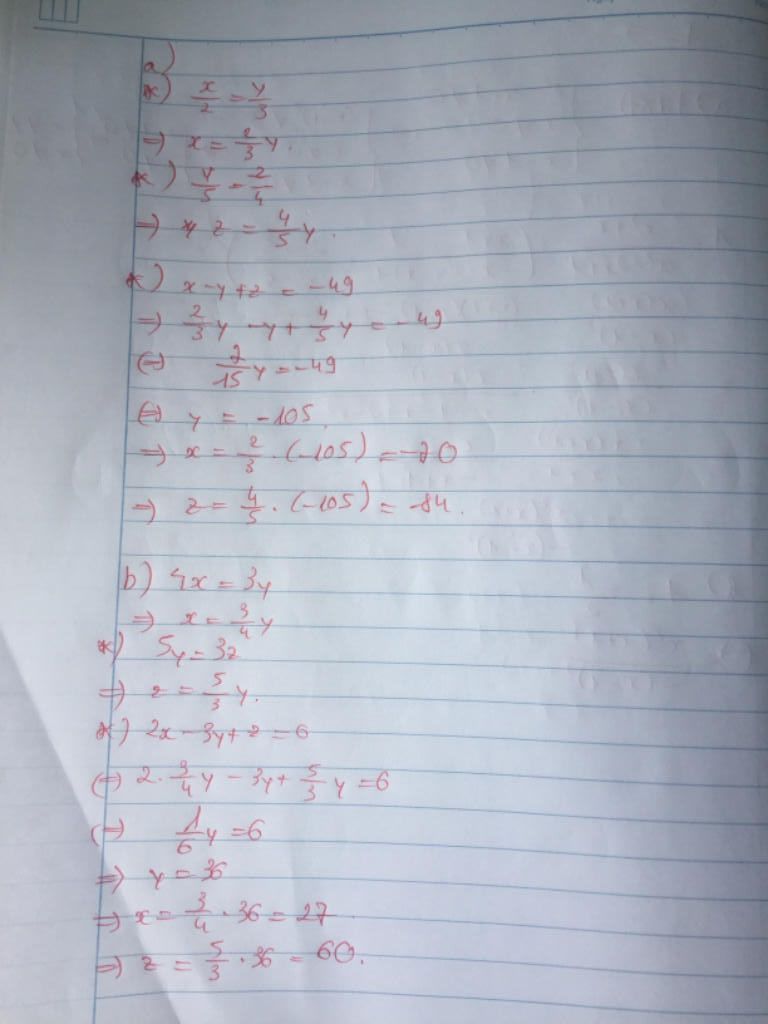 a)
*) x/2 = y/3
=> x = 2/3 y.
*) y/5 = z/4
=> z = 4/5 y.
*) x - y + z = -49
=> 2/3 y - y + 4/5 y = -49
(=) 7/15 y = -49
(=) y = -105.
=> x = 2/3 . (-105) = -70
=> z = 4/5 . (-105) = -84.
b) 4x = 3y
=> x = 3/4 y
*) 5y = 3z
=> z = 5/3 y.
*) 2x - 3y + z = 6
(=) 2 . 3/4 y - 3y + 5/3 y = 6
(=) 1/6 y = 6
=> y = 36
=> x = 3/4 . 36 = 27
=> z = 5/3 . 36 = 60.